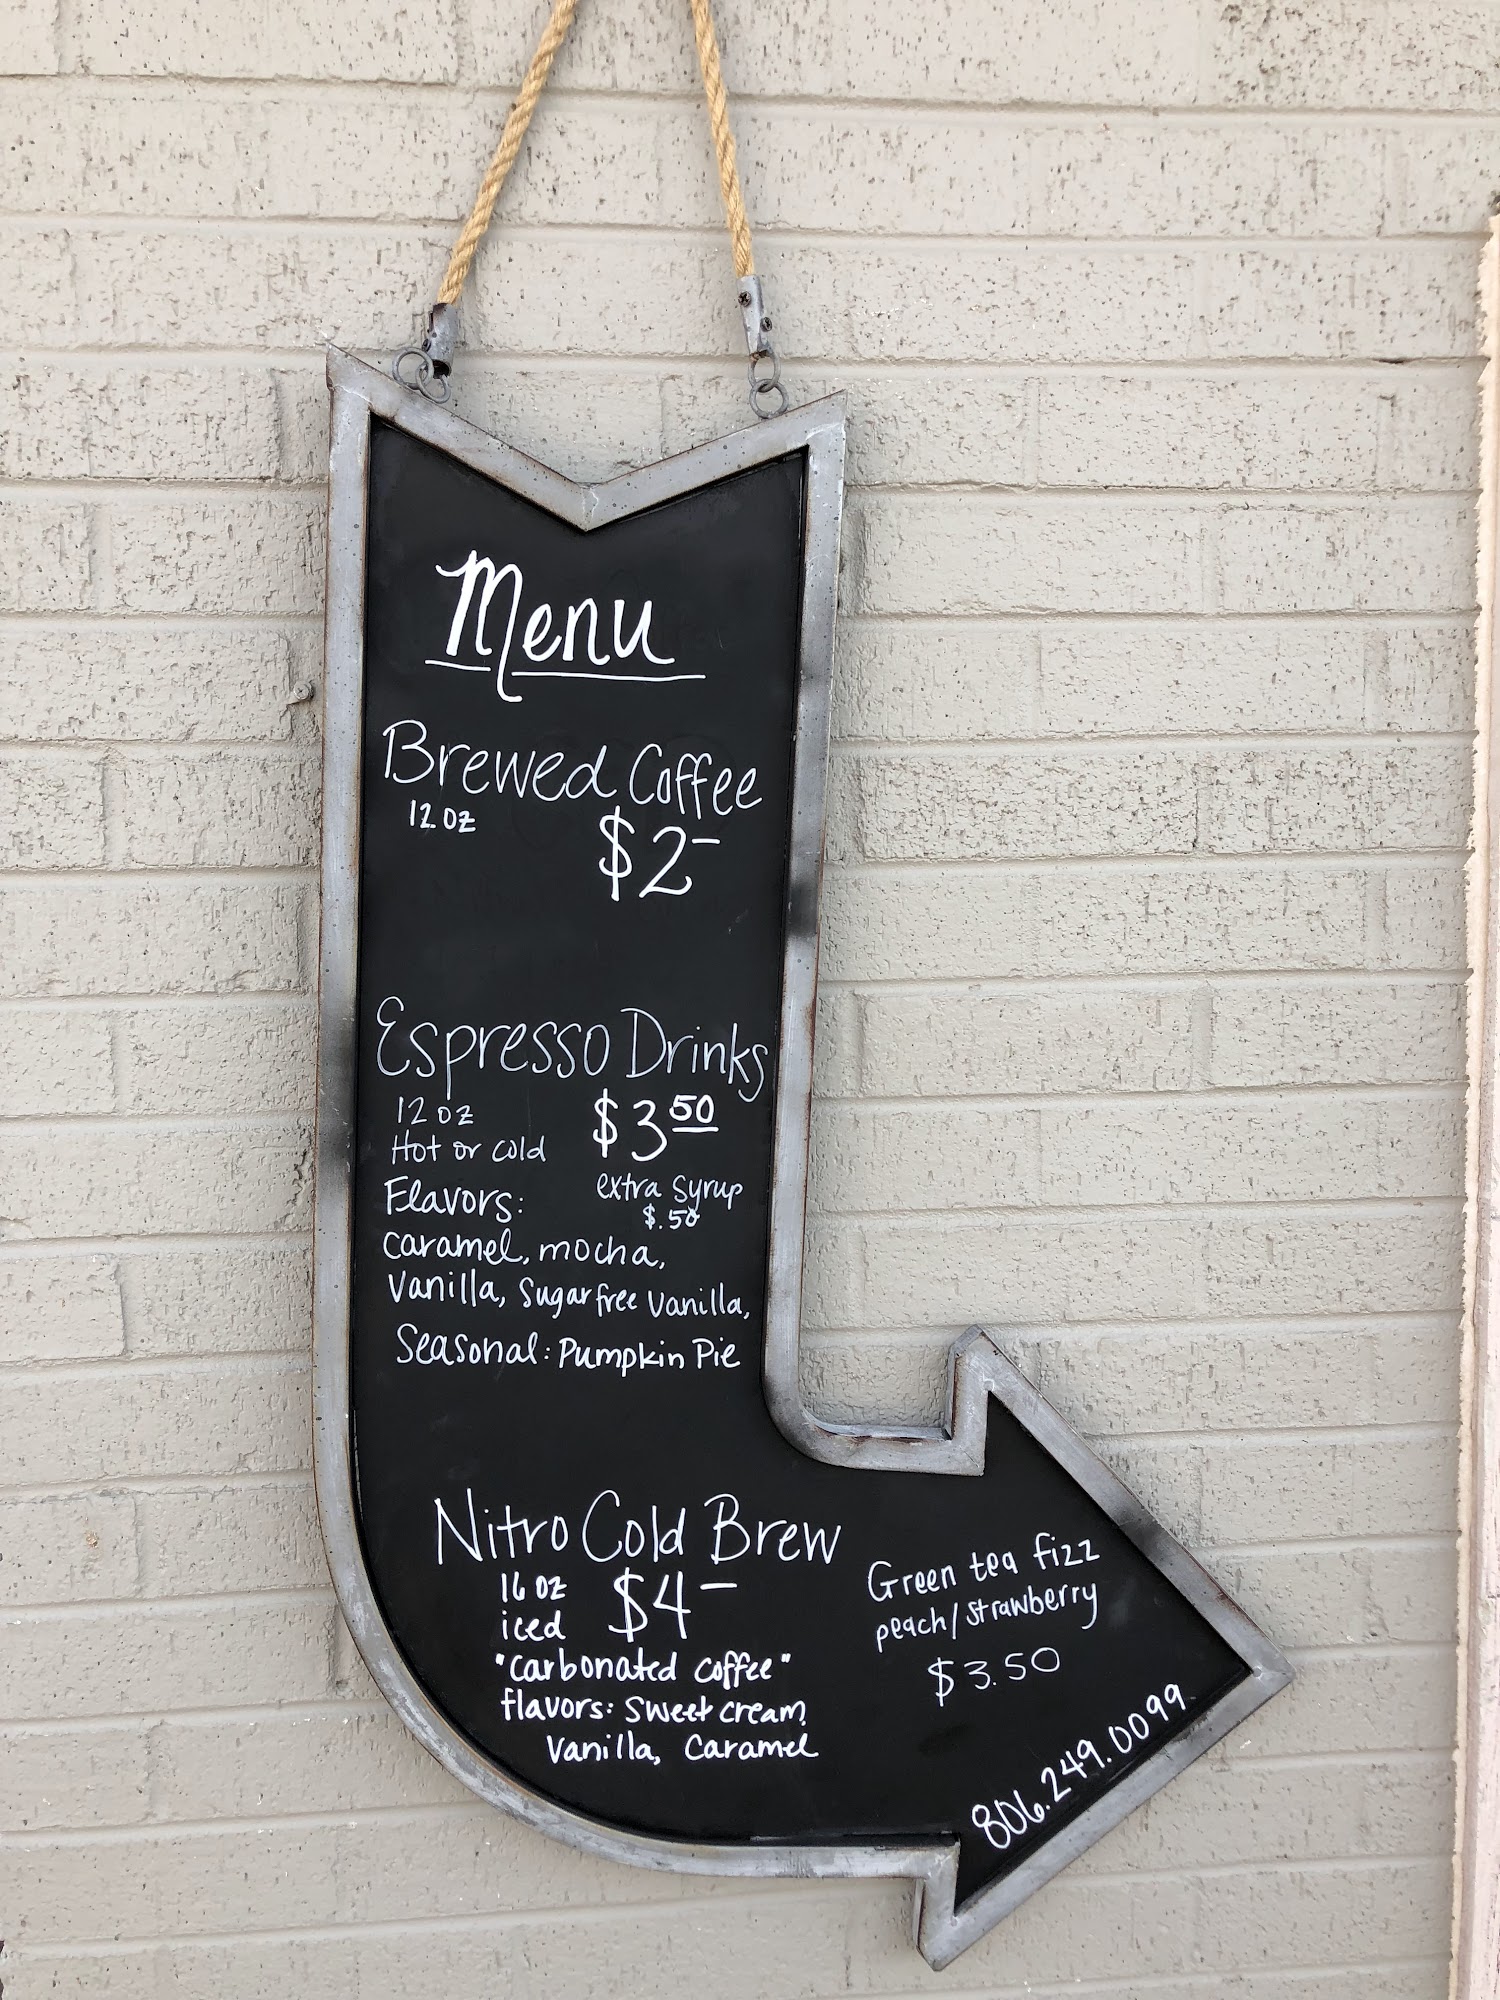 Menu
Brewed Coffee
12 oz $2-
Espresso Drinks
12 oz $3 50
Hot or cold
Flavors: extra syrup
$.50
caramel, mocha,
Vanilla, Sugar free Vanilla,
Seasonal: Pumpkin Pie
Nitro Cold Brew
16 oz $4-
iced
"Carbonated coffee"
flavors: Sweet cream,
Vanilla, Caramel
Green tea fizz
peach/strawberry
$3.50
806.249.0099